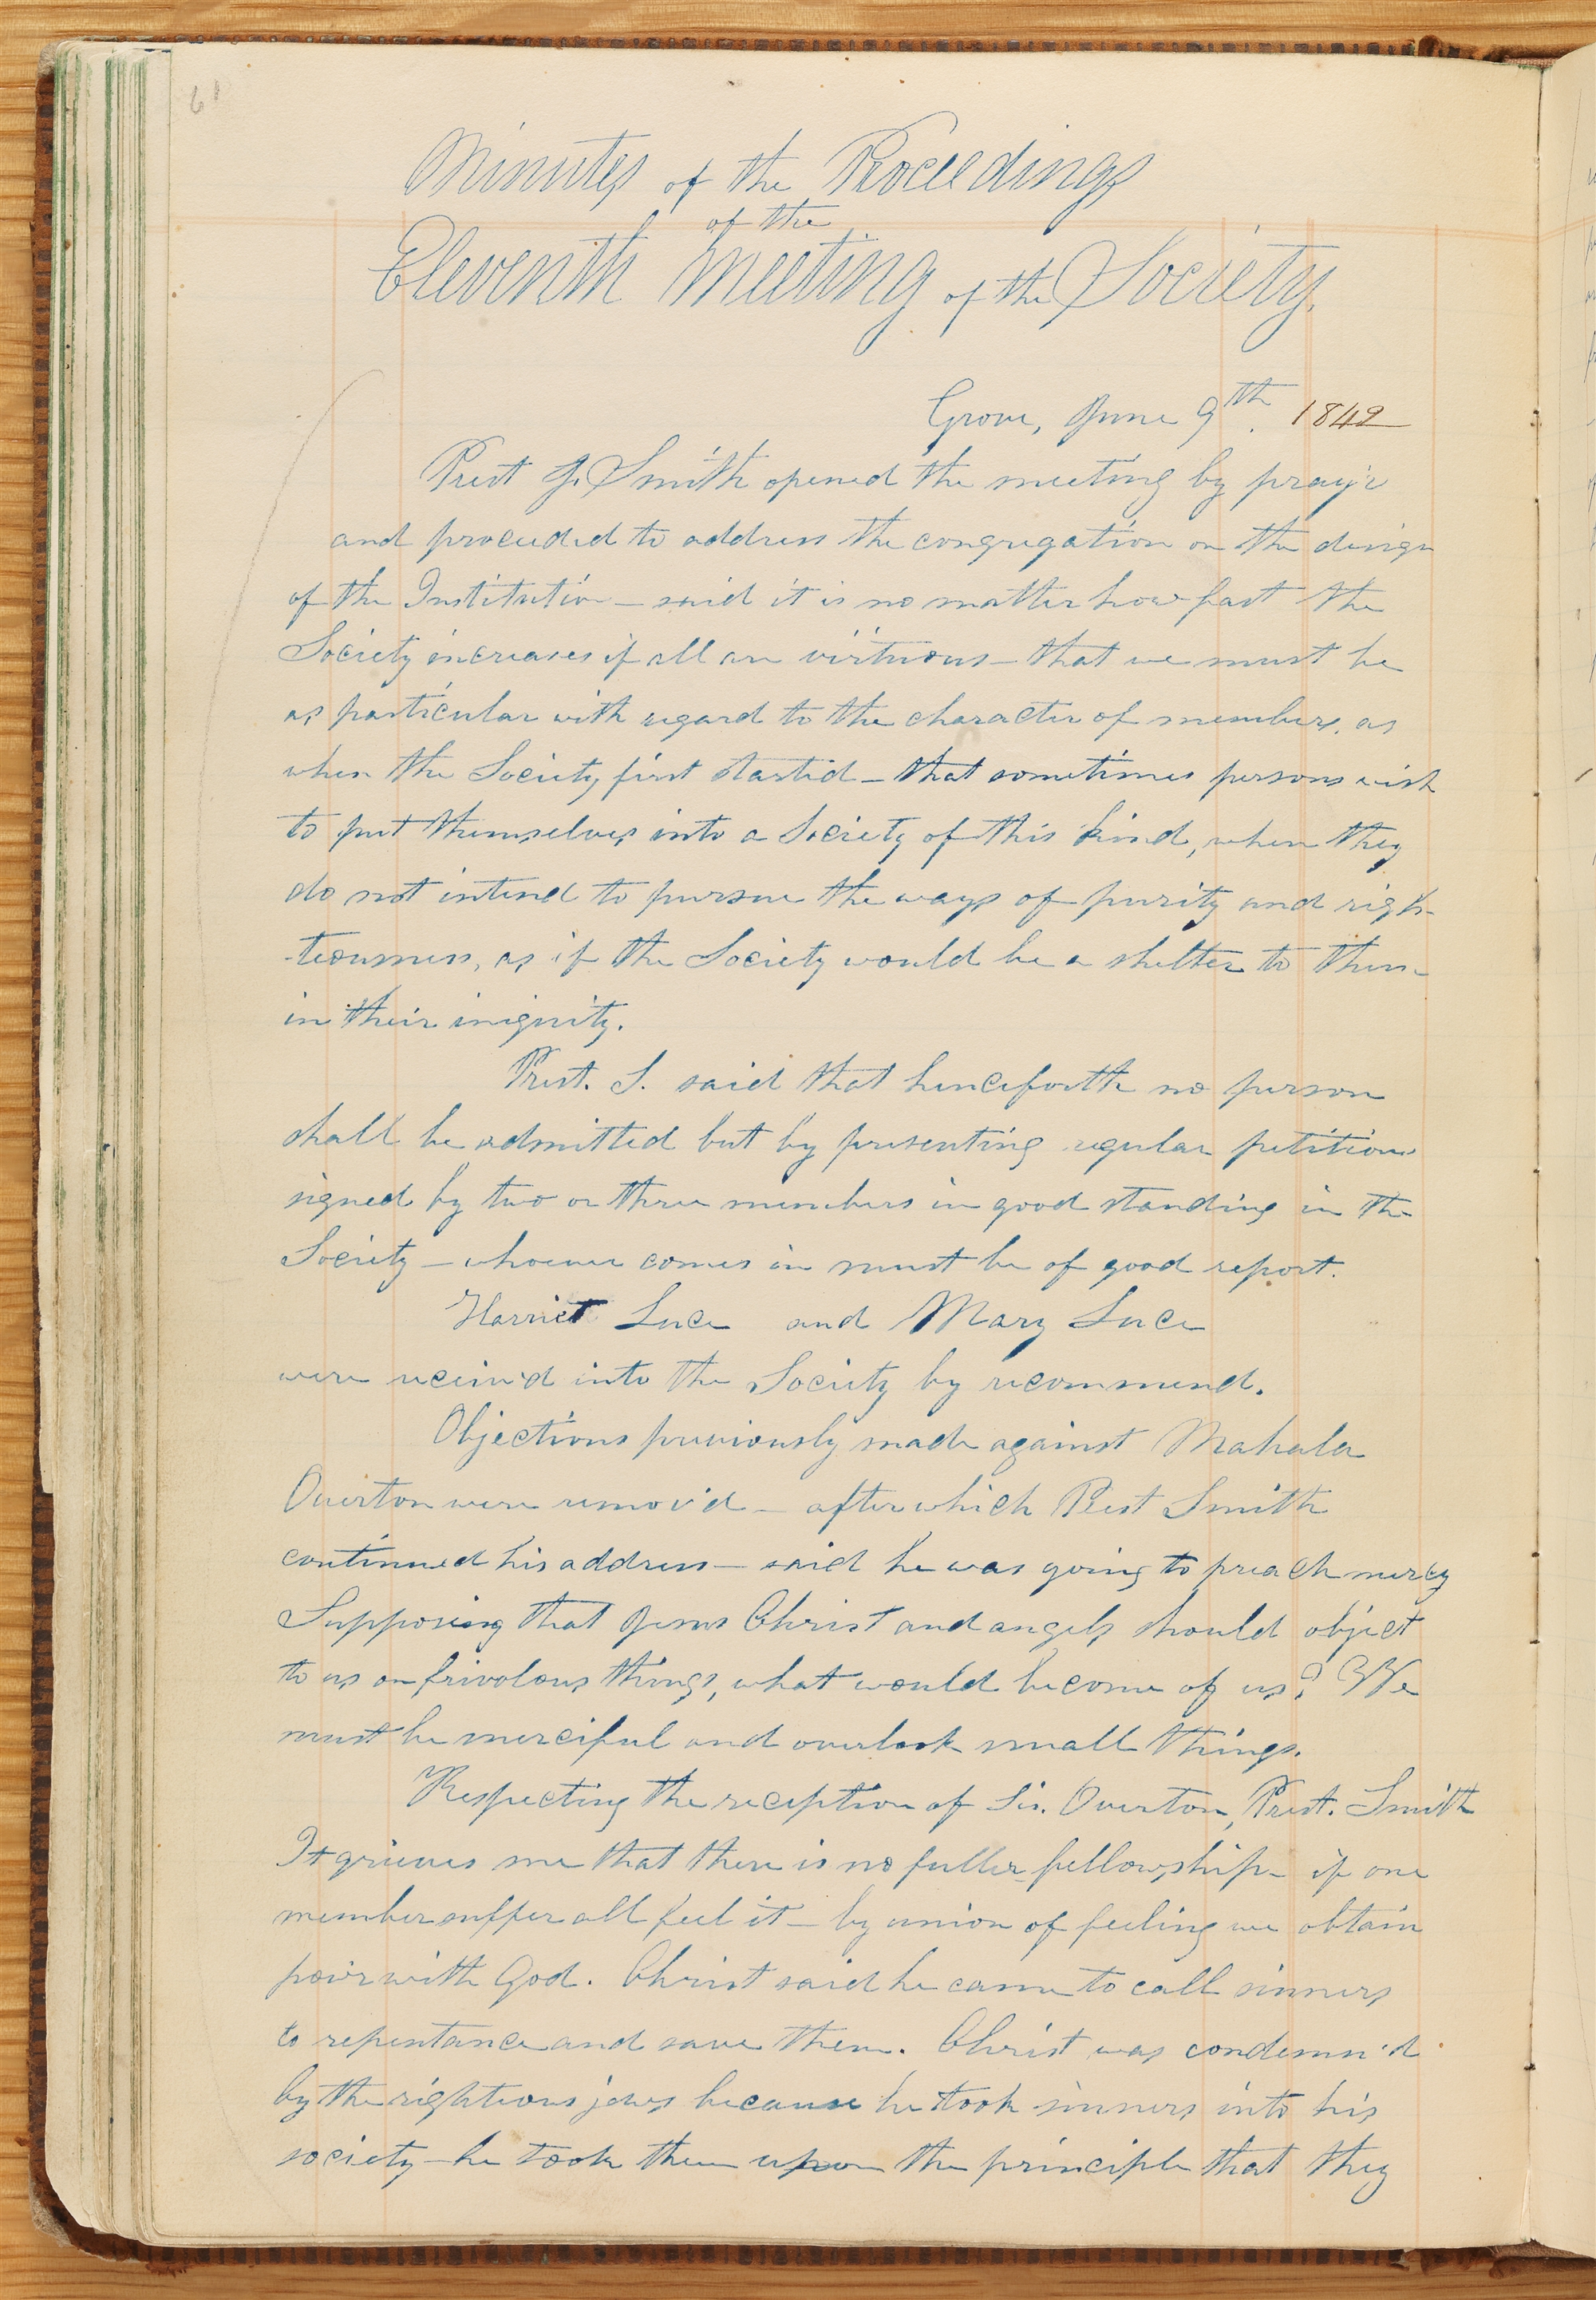 61
Minutes of the Proceedings
of the
Eleventh Meeting of the Society.
Grove, June 9th. 1842
Prest J. Smith opened the meeting by pray'r
and proceeded to address the congregation on the design
of the Institution — said it is no matter how fast the
Society increases if all are virtuous — that we must be
as particular with regard to the character of members, as
when the Society first started — that sometimes persons wish
to put themselves into a Society of this kind, when they
do not intend to pursue the ways of purity and righ-
-teousness, as if the Society would be a shelter to them
in their iniquity.
Prest. S. said that henceforth no person
shall be admitted but by presenting regular petitions
signed by two or three members in good standing in the
Society — whoever comes in must be of good report.
Harriet Luce and Mary Luce
were receiv'd into the Society by recommend.
Objections previously made against Mahala
Overton were remov'd — after which Prest Smith
continued his address — said he was going to preach mercy
Supposing that Jesus Christ and angels should object
to us on frivolous things, what would become of us? We
must be merciful and overlook small things.
Respecting the reception of Sis. Overton, Prest. Smith
It grieves me that there is no fuller fellowship — if one
member suffer all feel it — by union of feeling we obtain
pow'r with God. Christ said he came to call sinners
to repentance and save them. Christ was condemn'd
by the rightious jews because he took sinners into his
society — he took them upon the principle that they